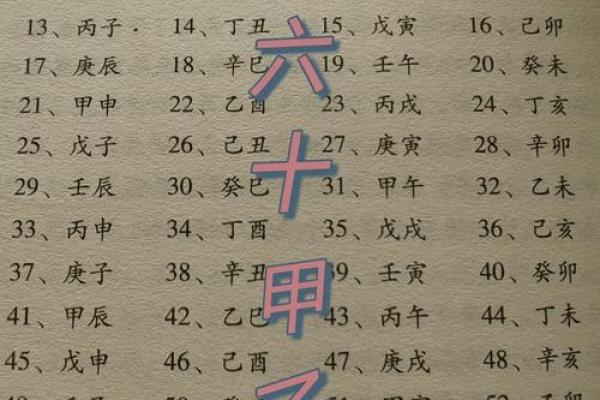 13、丙子. 14、丁丑 15、戊寅 16、己卯
17、庚辰 18、辛巳 19、壬午 20、癸未
21、甲申 22、乙酉 23、丙戌 24、丁亥
25、戊子 26、己丑 27、庚寅 28、辛卯
29、壬辰 30、癸巳 31、甲午 32、乙未
33、丙申 34、丁酉 35、戊戌 36、己亥
37、庚子 38、辛丑 39、壬寅 40、癸卯
41、甲辰 42、乙巳 43、丙午 44、丁未
45、戊申 46、己酉 47、庚戌 48、辛亥
六十甲子